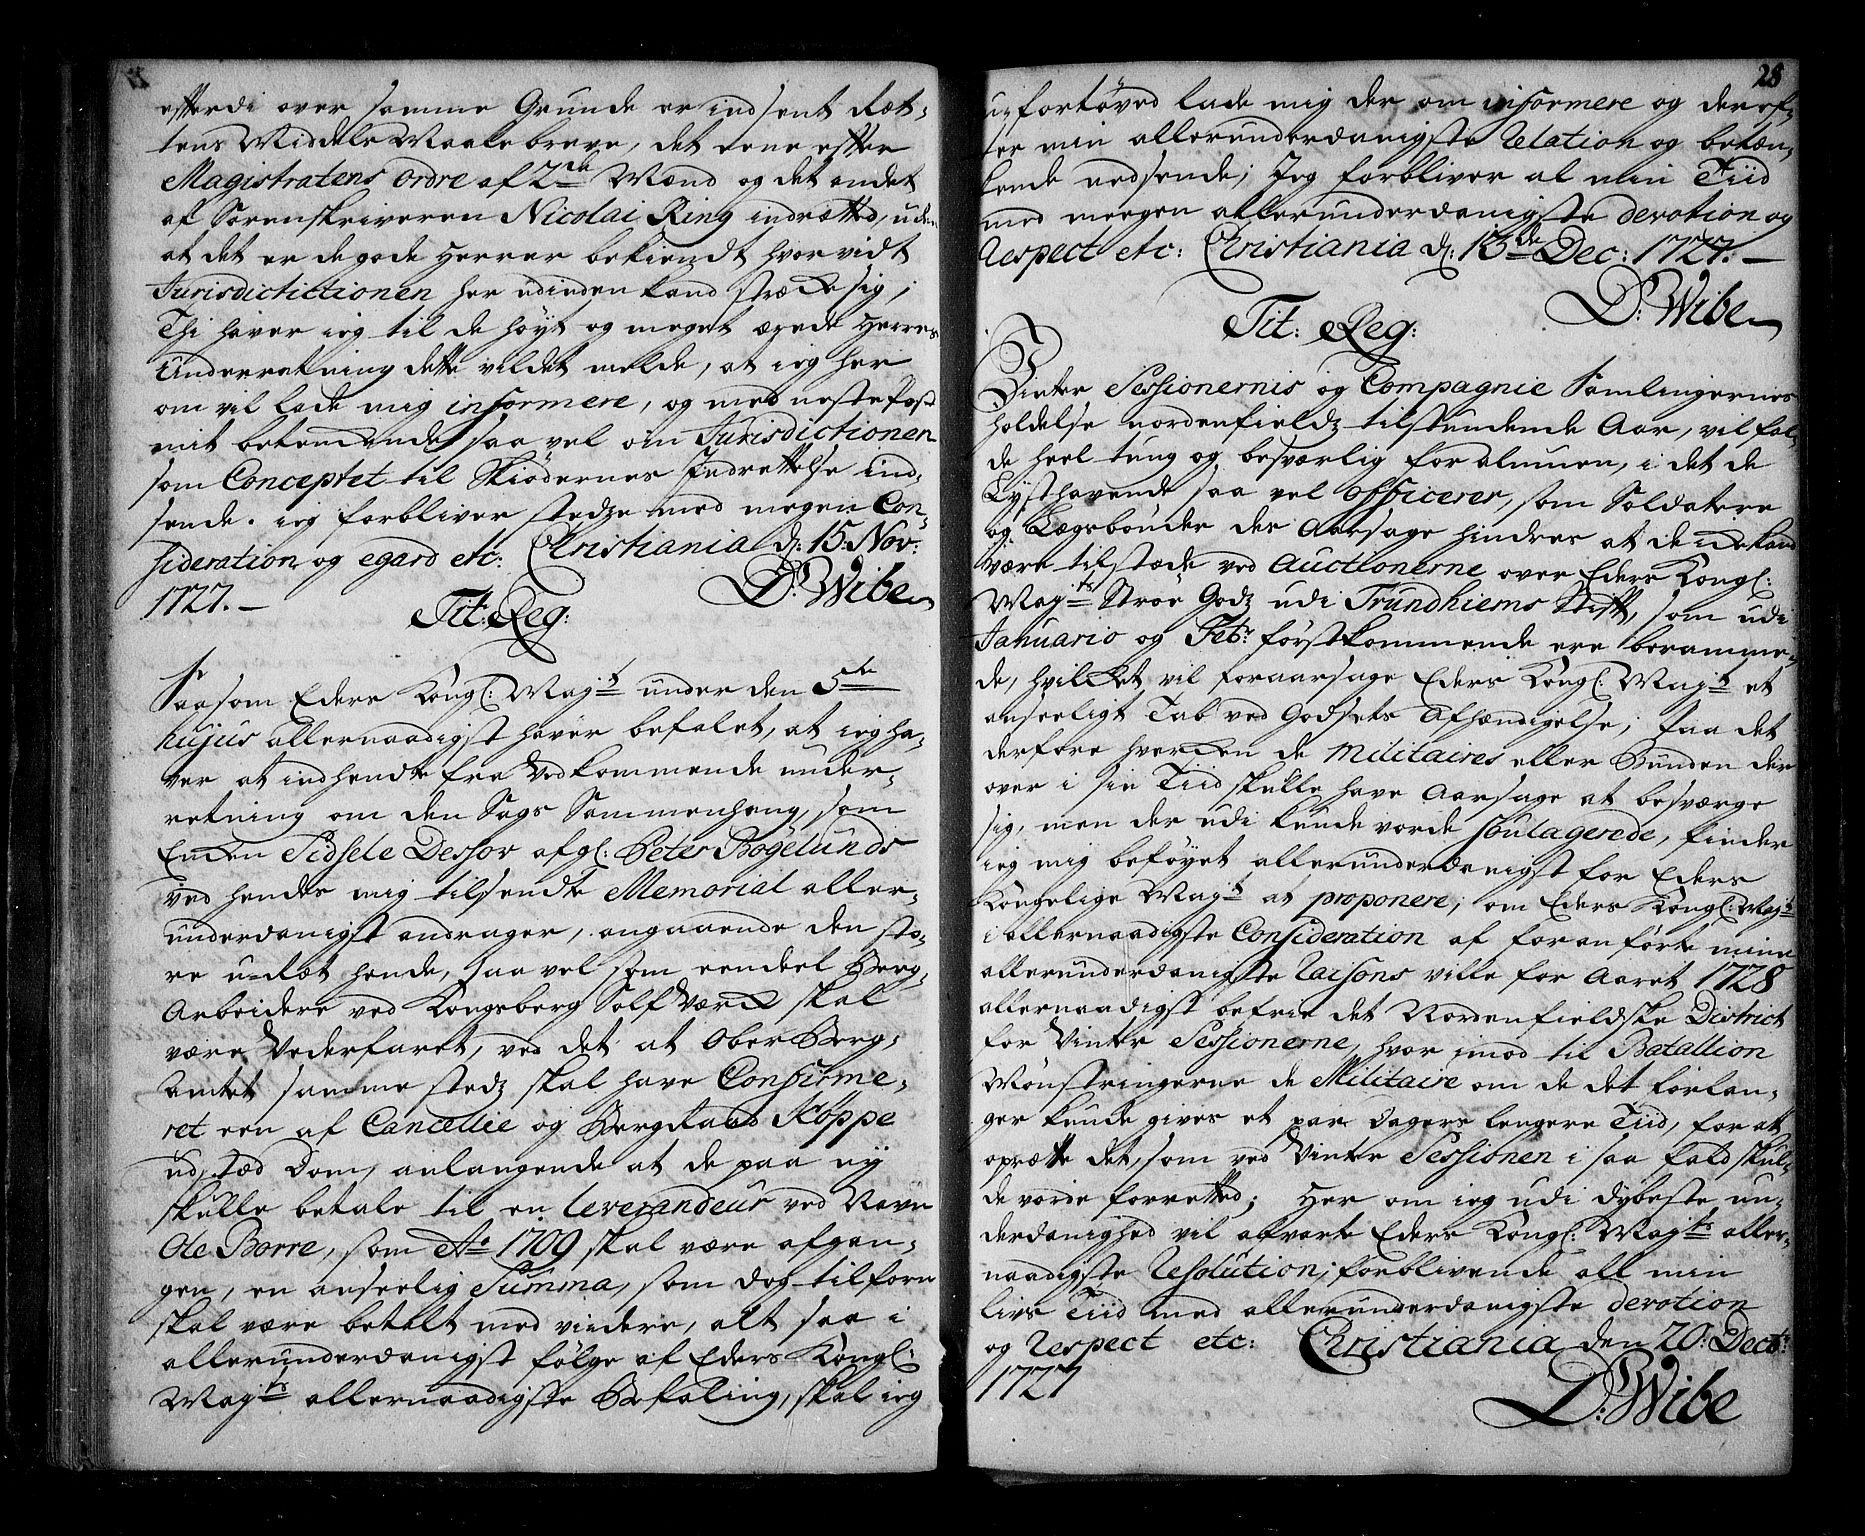 efterdi over samme Grunde er indsent Ræt-
tens Middels Maalebreve, det eene efter
Magistratens Ordre af 2de Mænd og det andet
af Sorenskriveren Nicolai Ring indrætted, uden
at det er de gode Herrer bekiendt hvorvidt
Jurisdictictionen her udinden kand stræcke sig;
Thi haver ieg til de høyt og meget ærede Herres
Underretning dette vildet melde, at ieg her
om vil lade mig informere, og med neste Post
mit betenckende saa vel om Jurisdictionen
som Conceptet til Skiødernes Indrettelse ind-
sende. ieg forbliver stedze med megen Con-
sideration og egard etc: Christiania d: 15: Nov:
1727. — D: Wibe
Tit: Reg:
Saasom Eders Kongl: Mayts under den 5te
hujus allernaadigst haver befalet, at ieg ha-
ver at indhendte fra Vedkommende under-
retning om den Sags Sammenhæng, som
Encken Sidsele Dessov afgl: Peter Bøgelunds
ved hendes mig tilsendte Memorial aller-
underdanigst andrager, angaaende den sto-
re u-Ræt hende, saa vel som eendeel Berg-
Arbeidere ved Kongsberg Sølf Værck skal
være Vederfaret, ved det at Ober Berg-
Amtet sammestedz skal have Confirme-
ret een af Cancellie og Bergraad Köppe
udstæd Dom, anlangende at de paa ny
skulle betale til en leverandeur ved Navn
Ole Borre, som Ao 1709 skal være afgan-
gen, en anseelig Summa, som dog tilforn
skal være betalt med videre, alt saa i
allerunderdanigst følge af Eders Kongl:
Mayts allernaadigste Befaling, skal ieg
28
u-fortøved lade mig der om informere og deref-
ter min allerunderdanigste Relation og betæn-
kende nedsende; Jeg forbliver al min Tiid
med meegen allerunderdanigste devotion og
Respect etc: Christiania d: 13de Dec: 1727. —
D: Wibe
Tit: Reg:
Vinter Sessionernis og Compagnie Samlingernes
holdelse nordenfieldz tilstundende Aar, vil fal-
de heel tung og besværlig for almuen, i det de
Lysthavende saa vel officerer, som Soldatere
og Lægsbønder der Aarsage hindres at de icke kand
være tilstæde ved Auctionerne over Eders Kongl:
Mayts Strøe Godz udi Trundhiems Stift, som udi
Januario og Febr: førstkommende ere beramme-
de, hvilcket vil foraarsage Eders Kongl: Mayts et
anseeligt Tab ved Godsets Afhændigelse; Paa det
derfore hvercken de Militaires eller Bunden der
over i sin Tiid skulle have Aarsage at besværge
sig, men der udi kunde vorde soulagerede, finder
ieg mig beføyet allerunderdanigst for Eders
Kongelige Mayts at proponere; om Eders Kongl: Mayts
i allernaadigste Consideration af foranførte mine
allerunderdanigste Raisons ville for Aaret 1728
allernaadigst befrie det Nordenfieldske District
for Vinter Sessionerne, hvor imod til Batallion
Mønstringerne de Militaire om de det forlan-
ger kunde gives et par Dagers lengere Tiid, for at
oprætte det, som ved Vinter Sessionen i saa fald skul-
de vorde forrætted; Her om ieg udi dybeste un-
derdanighed vil afvarte Eders Kongl: Mayts aller-
naadigste Resolution; forblivende all min
livs Tiid med allerunderdanigste devotion
og Respect etc: Christiania den 20: Decbr:
1727
D: Wibe